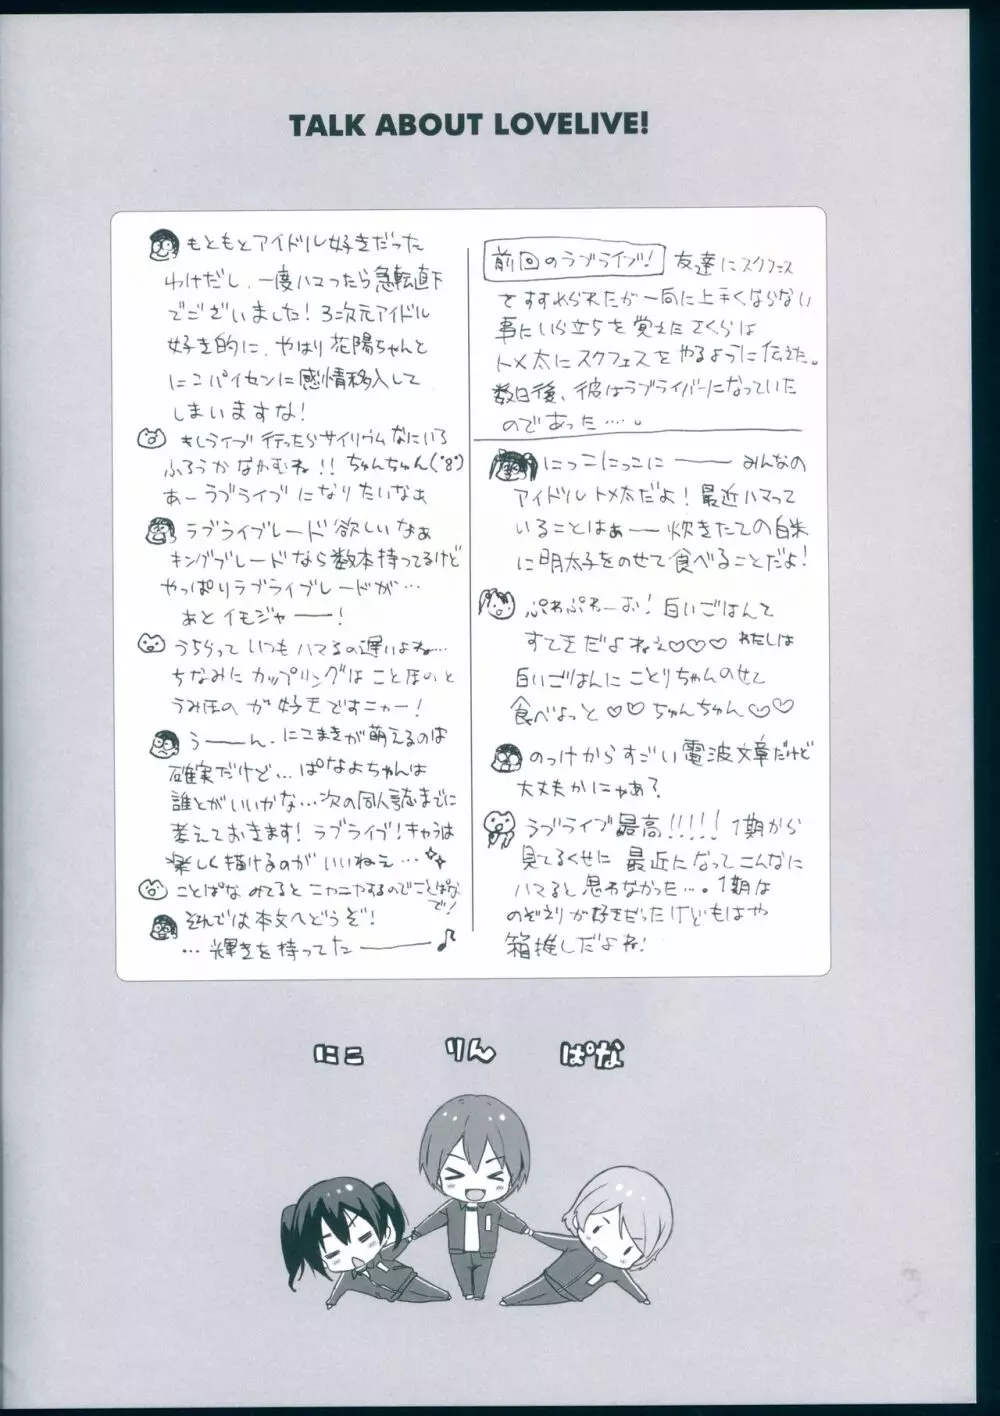 TALK ABOUT LOVELIVE!
前回のラブライブ! 友達にスクフェス
をすすめられたが一向に上手くならない
事にいら立ちを覚えたさくらは
トメ太にスクフェスをやるように伝えた。
数日後、彼はラブライバーになっていた
のであった…。
にっこにっこにーーー みんなの
アイドル トメ太だよ! 最近ハマって
いることはぁー 炊きたての白米
に明太子をのせて食べることだよ!
ぷわぷわーお! 白いごはんて
すてきだよねぇ♡♡♡ わたしは
白いごはんにことりちゃんのせて
食べよっと♡♡ちゅんちゅん♡♡
のっけからすごい電波文章だけど
大丈夫かにゃあ?
ラブライブ最高!!!!! 1期から
見てるくせに 最近になってこんなに
ハマると思わなかった…。1期は
のぞえりが好きだったけどもはや
箱推しだよね!
もともとアイドル好きだった
わけだし、一度ハマったら急転直下
でございました! 3次元アイドル
好き的に、やはり花陽ちゃんと
にこパイセンに感情移入して
しまいますな!
もしライブ行ったらサイリウムなにいろ
ふろうかなかむね!! ちゅんちゅん(°8°)
あーラブライブになりたいなぁ
ラブライブレード欲しいなぁ
キングブレードなら数本持ってるけど
やっぱりラブライブレードが…
あとイモジャー!
うちらっていつもハマるの遅いよね…
ちなみにカップリングはことほのと
うみほのが好きですニャー!
うーーん、にこまきが萌えるのは
確実だけど…ぱなよちゃんは
誰とがいいかな…次の同人誌までに
考えておきます! ラブライブ!キャラは
楽しく描けるのがいいねぇ…
ことぱなみてるとニヤニヤするのでことぱな
で!
それでは本文へどうぞ!
…輝きを持ってたーーー♪
にこ りん ぱな